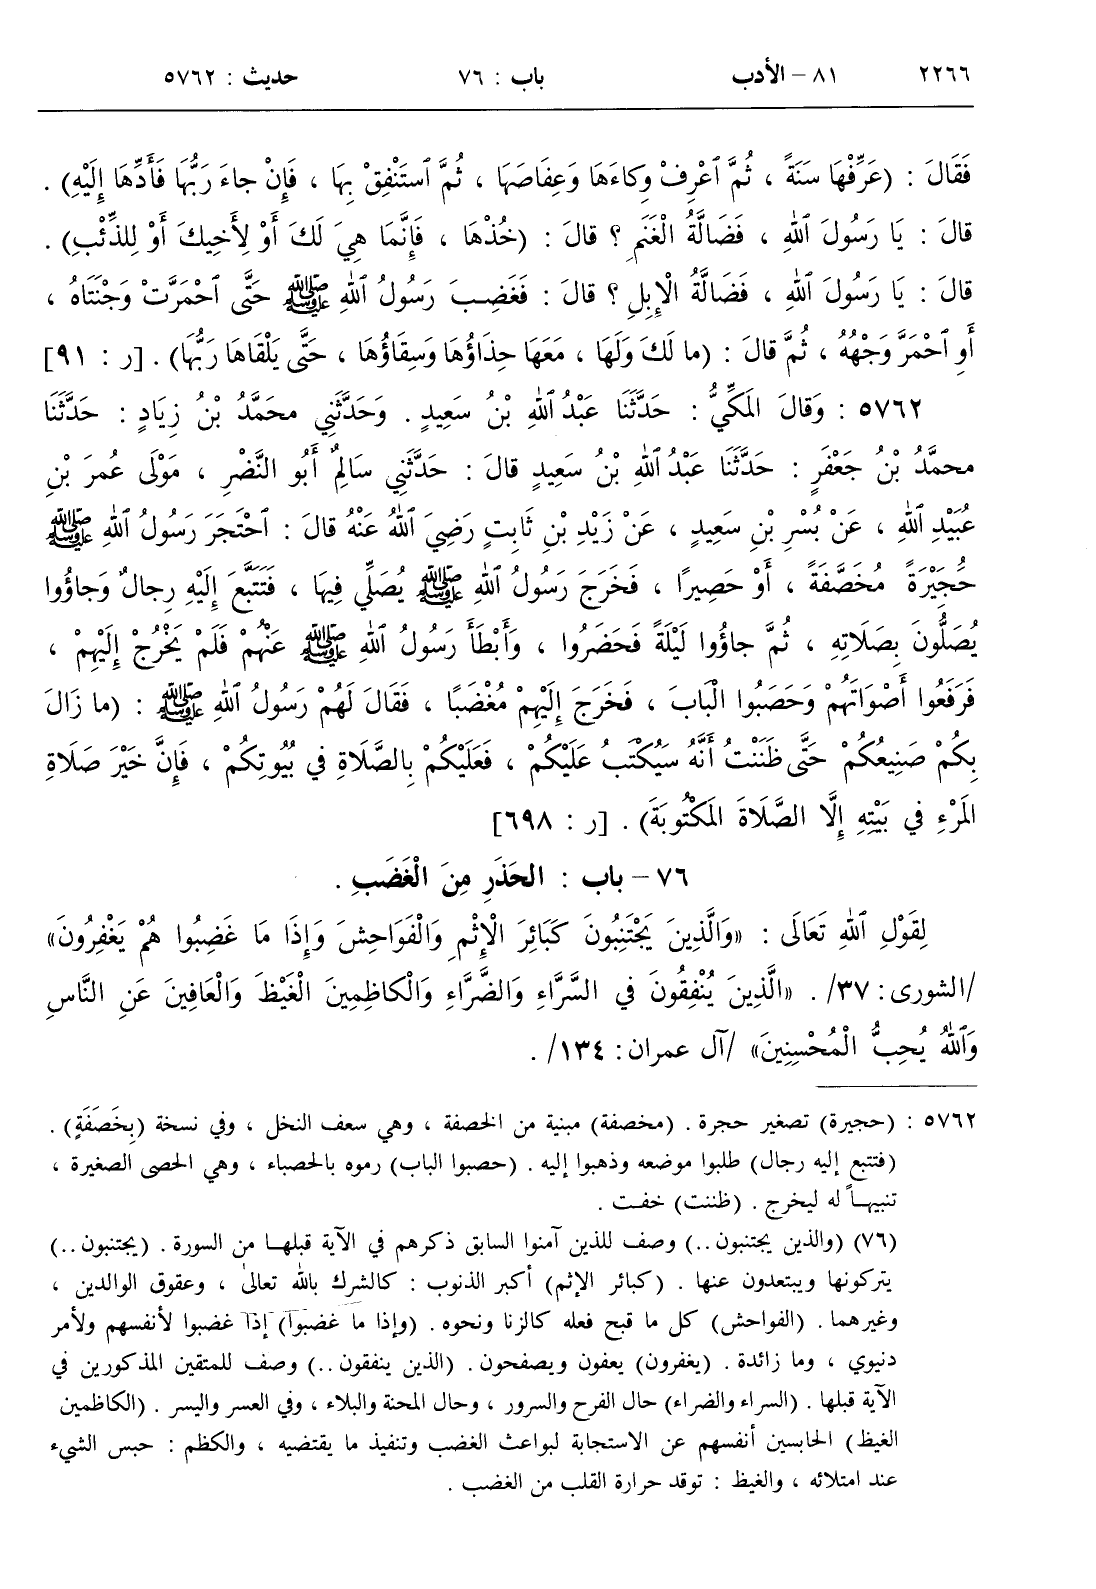 ٢٢٦٦ ٨١ – الأدب باب : ٧٦ حديث : ٥٧٦٢
فَقَالَ : (عَرِّفْهَا سَنَةً ، ثُمَّ ٱعْرِفْ وِكاءَهَا وَعِفَاصَهَا ، ثُمَّ ٱسْتَنْفِقْ بِهَا ، فَإِنْ جاءَ رَبُّهَا فَأَدِّهَا إِلَيْهِ) .
قالَ : يَا رَسُولَ ٱللهِ ، فَضَالَّةُ الْغَنَمِ ؟ قالَ : (خُذْهَا ، فَإِنَّمَا هِيَ لَكَ أَوْ لِأَخِيكَ أَوْ لِلذِّئْبِ) .
قالَ : يَا رَسُولَ ٱللهِ ، فَضَالَّةُ الْإِبِلِ ؟ قالَ : فَغَضِبَ رَسُولُ ٱللهِ ﷺ حَتَّى ٱحْمَرَّتْ وَجْنَتَاهُ ،
أَوِ ٱحْمَرَّ وَجْهُهُ ، ثُمَّ قالَ : (ما لَكَ وَلَهَا ، مَعَهَا حِذَاؤُهَا وَسِقَاؤُهَا ، حَتَّى يَلْقَاهَا رَبُّهَا) . [ر : ٩١]
٥٧٦٢ : وَقالَ المَكِّيُّ : حَدَّثَنَا عَبْدُ ٱللهِ بْنُ سَعِيدٍ . وَحَدَّثَنِي محَمَّدُ بْنُ زِيَادٍ : حَدَّثَنَا
محمَّدُ بْنُ جَعْفَرٍ : حَدَّثَنَا عَبْدُ ٱللهِ بْنُ سَعِيدٍ قالَ : حَدَّثَنِي سَالِمٌ أَبُو النَّضْرِ ، مَوْلَى عُمرَ بْنِ
عُبَيْدِ ٱللهِ ، عَنْ بُسْرِ بْنِ سَعِيدٍ ، عَنْ زَيْدِ بْنِ ثَابِتٍ رَضِيَ ٱللهُ عَنْهُ قالَ : ٱحْتَجَرَ رَسُولُ ٱللهِ ﷺ
حُجَيْرَةً مُخَصَّفَةً ، أَوْ حَصِيرًا ، فَخَرَجَ رَسُولُ ٱللهِ ﷺ يُصَلِّي فِيهَا ، فَتَتَبَّعَ إِلَيْهِ رِجالٌ وَجاؤُوا
يُصَلُّونَ بِصَلَاتِهِ ، ثُمَّ جاؤُوا لَيْلَةً فَحَضَرُوا ، وَأَبْطَأَ رَسُولُ ٱللهِ ﷺ عَنْهُمْ فَلَمْ يَخْرُجْ إِلَيْهِمْ ،
فَرَفَعُوا أَصْوَاتَهُمْ وَحَصَبُوا الْبَابَ ، فَخَرَجَ إِلَيْهِمْ مُغْضَبًا ، فَقَالَ لَهُمْ رَسُولُ ٱللهِ ﷺ : (ما زَالَ
بِكُمْ صَنِيعُكُمْ حَتَّى ظَنَنْتُ أَنَّهُ سَيُكْتَبُ عَلَيْكُمْ ، فَعَلَيْكُمْ بِالصَّلَاةِ في بُيُوتِكُمْ ، فَإِنَّ خَيْرَ صَلَاةِ
المَرْءِ في بَيْتِهِ إِلَّا الصَّلَاةَ المَكْتُوبَةَ) . [ر : ٦٩٨]
٧٦ – باب : الحَذَرِ مِنَ الْغَضَبِ .
لِقَوْلِ ٱللهِ تَعَالَى : «وَالَّذِينَ يَجْتَنِبُونَ كَبَائِرَ الْإِثْمِ وَالْفَوَاحِشَ وَإِذَا مَا غَضِبُوا هُمْ يَغْفِرُونَ»
/الشورى : ٣٧/ . «الَّذِينَ يُنْفِقُونَ في السَّرَّاءِ وَالضَّرَّاءِ وَالْكاظِمِينَ الْغَيْظَ وَالْعَافِينَ عَنِ النَّاسِ
وَٱللهُ يُحِبُّ الْمُحْسِنِينَ» /آل عمران : ١٣٤/ .
٥٧٦٢ : (حجيرة) تصغير حجرة . (مخصفة) مبنية من الخصفة ، وهي سعف النخل ، وفي نسخة (بِخَصَفَةٍ) .
(فتتبع إليه رجال) طلبوا موضعه وذهبوا إليه . (حصبوا الباب) رموه بالحصباء ، وهي الحصى الصغيرة ،
تنبيهاً له ليخرج . (ظننت) خفت .
(٧٦) (والذين يجتنبون ..) وصف للذين آمنوا السابق ذكرهم في الآية قبلها من السورة . (يجتنبون ..)
يتركونها ويبتعدون عنها . (كبائر الإثم) أكبر الذنوب : كالشرك بالله تعالىٰ ، وعقوق الوالدين ،
وغيرهما . (الفواحش) كل ما قبح فعله كالزنا ونحوه . (وإذا ما غضبوا) إذا غضبوا لأنفسهم ولأمر
دنيوي ، وما زائدة . (يغفرون) يعفون ويصفحون . (الذين ينفقون ..) وصف للمتقين المذكورين في
الآية قبلها . (السراء والضراء) حال الفرح والسرور ، وحال المحنة والبلاء ، وفي العسر واليسر . (الكاظمين
الغيظ) الحابسين أنفسهم عن الاستجابة لبواعث الغضب وتنفيذ ما يقتضيه ، والكظم : حبس الشيء
عند امتلائه ، والغيظ : توقد حرارة القلب من الغضب .